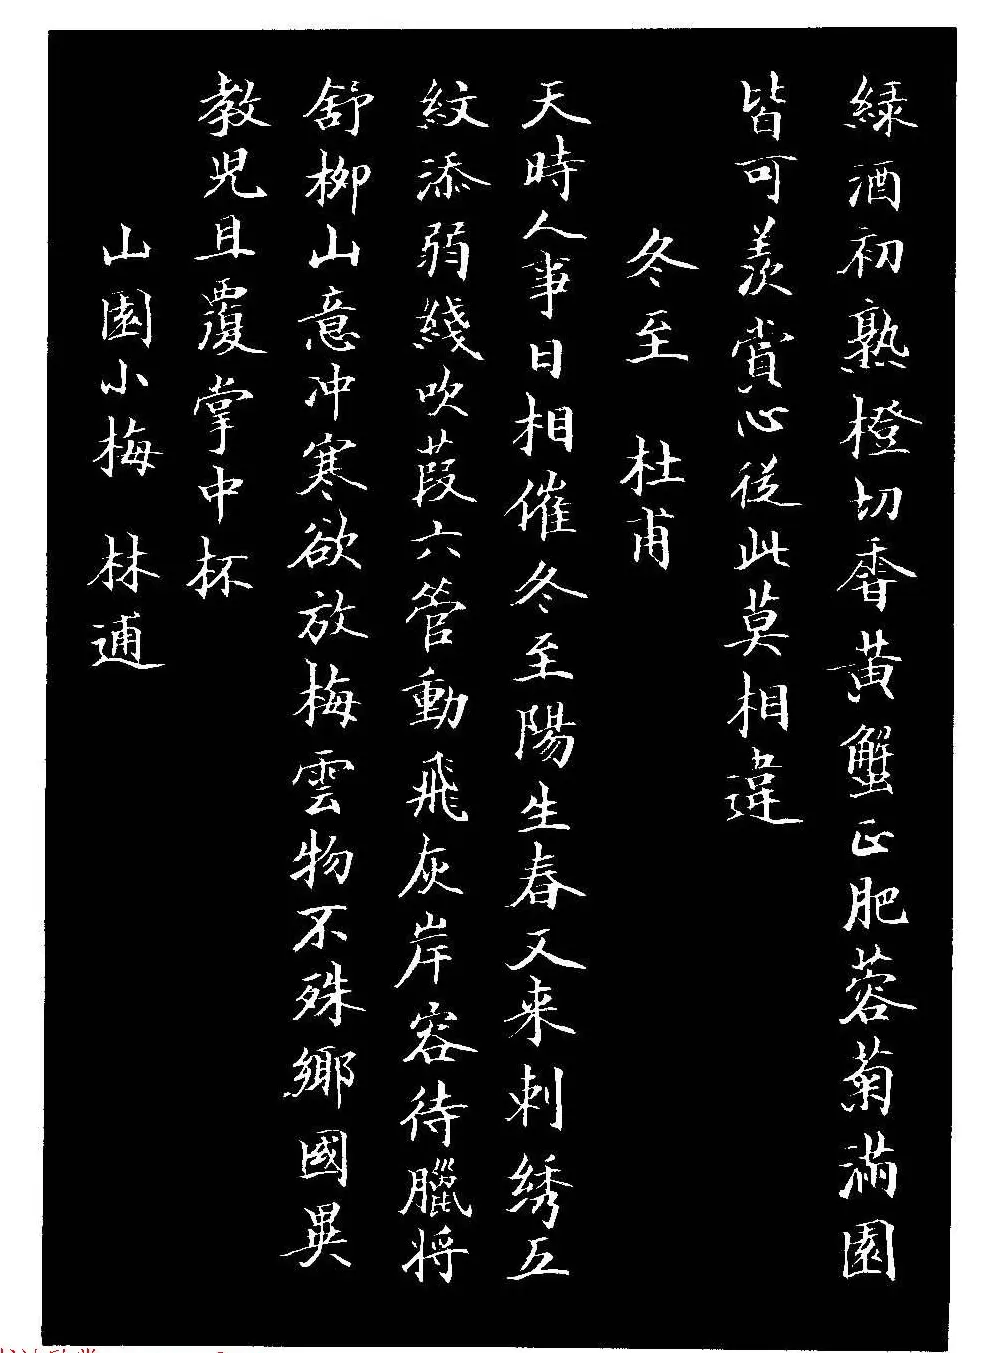 緑酒初熟橙切香黄蟹正肥蓉菊滿園
皆可羨賞心從此莫相違
冬至 杜甫
天時人事日相催冬至陽生春又来刺绣五
紋添弱綫吹葭六管動飛灰岸容待臘将
舒柳山意冲寒欲放梅雲物不殊鄉國異
教児且覆掌中杯
山園小梅 林逋